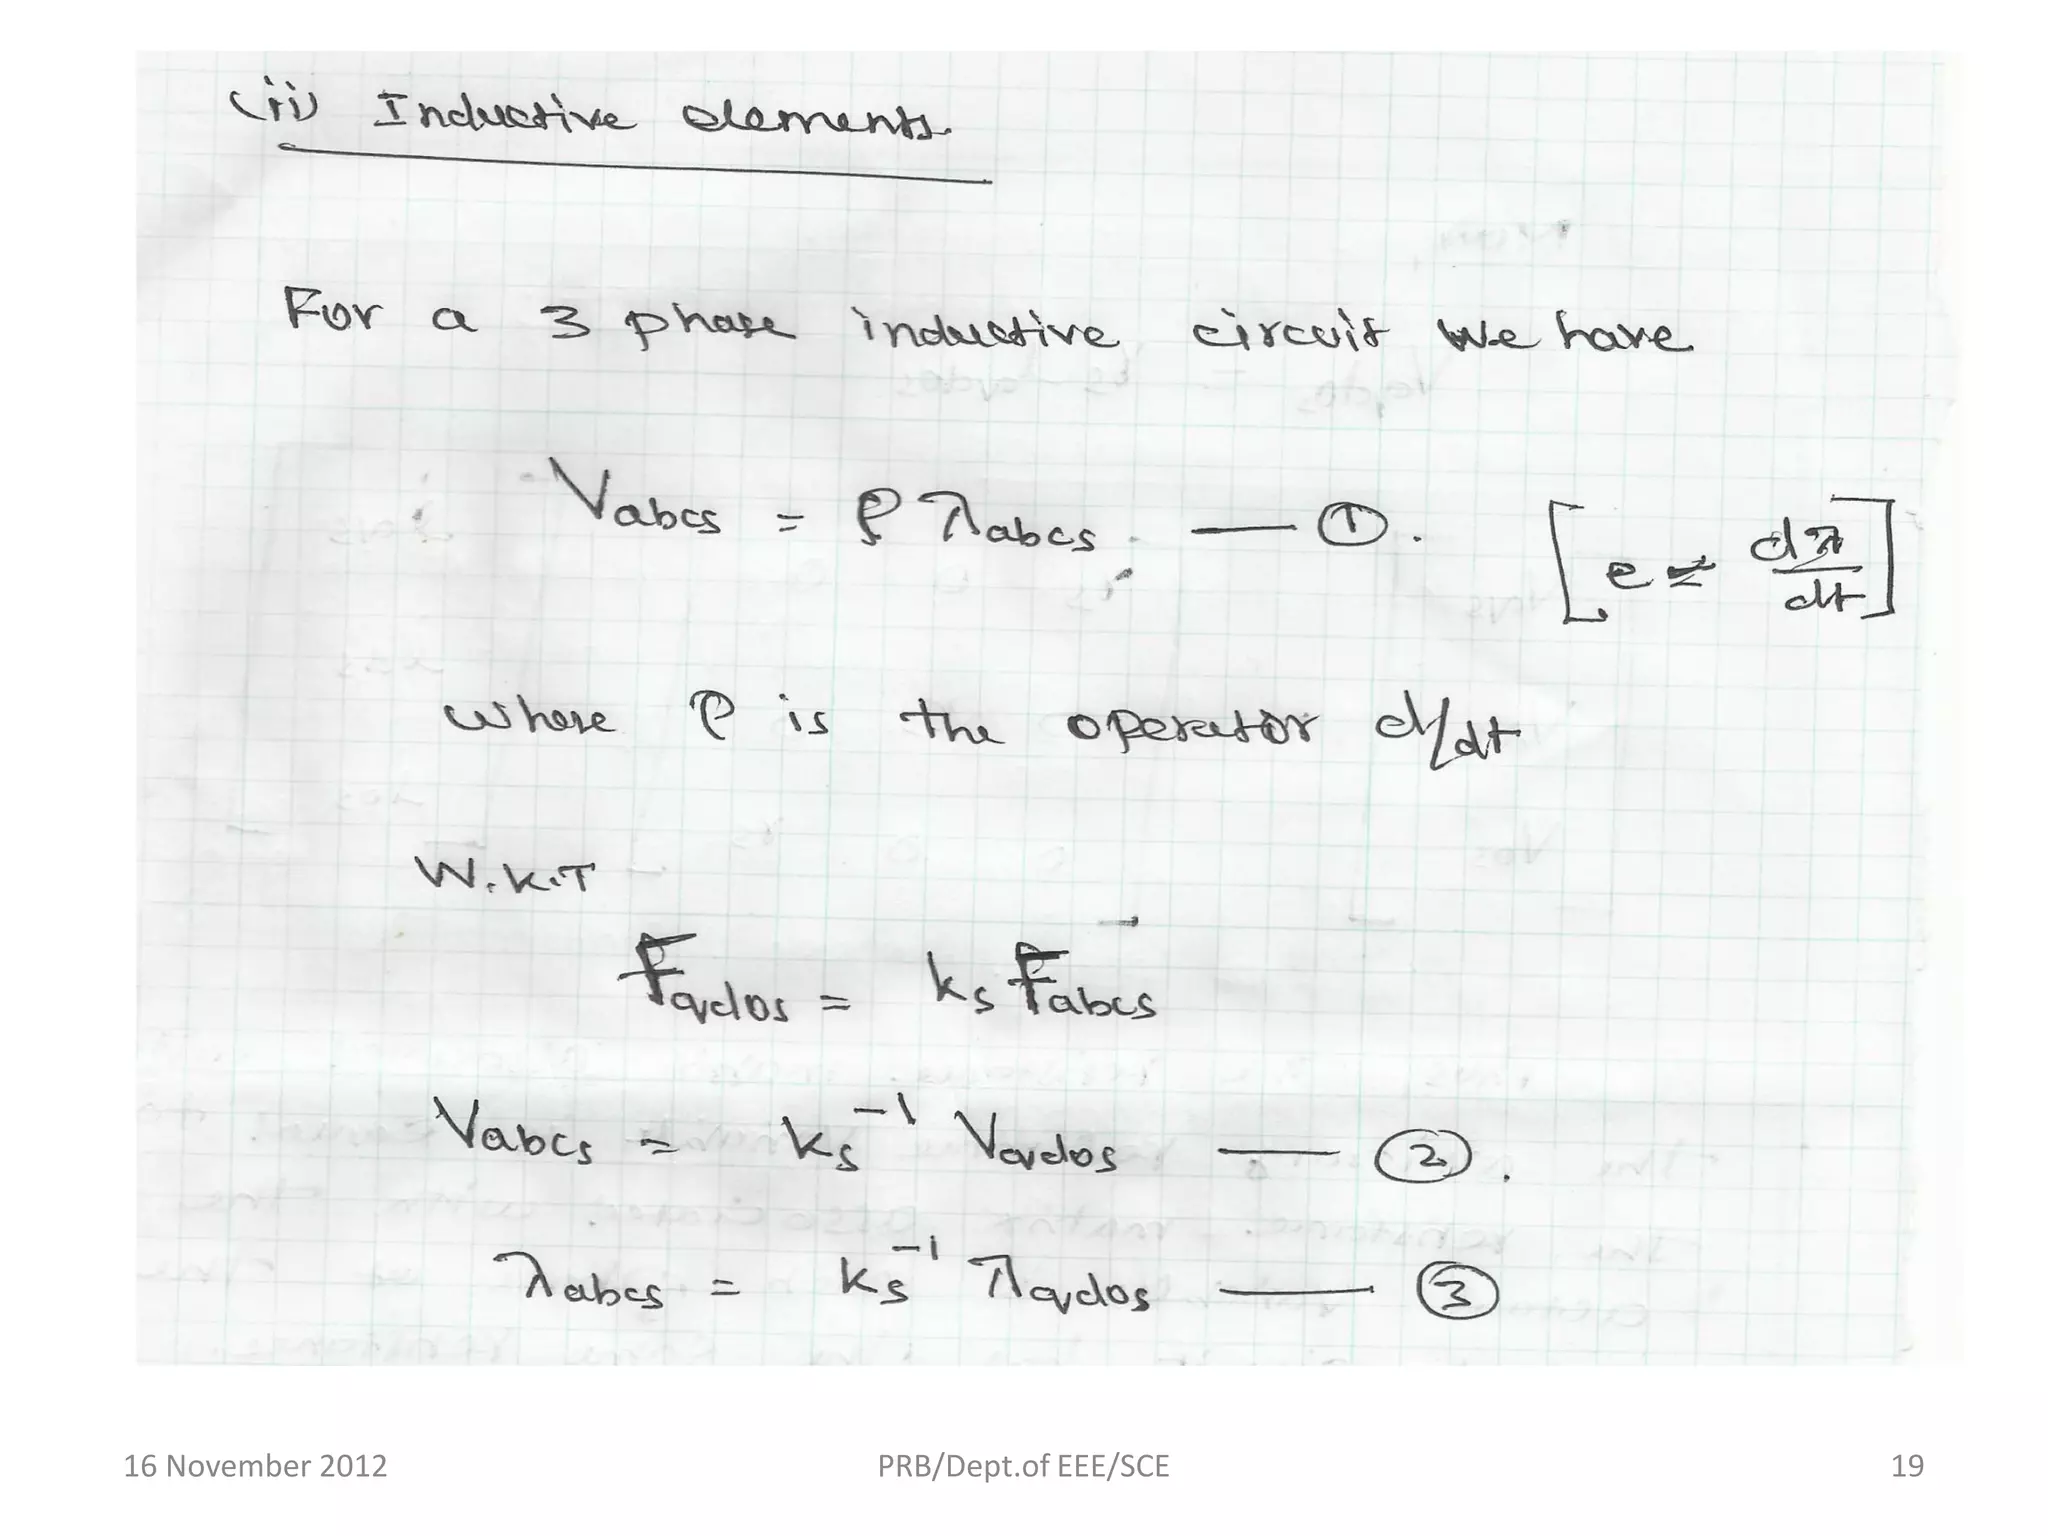 (ii) Inductive elements.
For a 3 phase inductive circuit we have
Vabcs = ρ λabcs — ① . [e = dλ/dt]
where P is the operator d/dt
W.K.T
Fqdos = ks Fabcs
Vabcs = ks⁻¹ Vqdos — ② .
λabcs = ks⁻¹ λqdos — ③
16 November 2012
PRB/Dept.of EEE/SCE
19